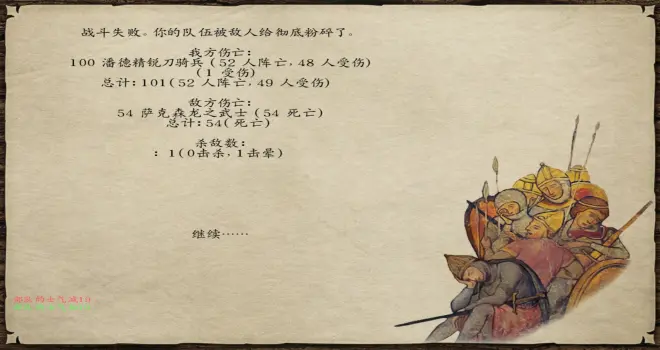 战斗失败。你的队伍被敌人给彻底粉碎了。
我方伤亡:
100 潘德精锐刀骑兵 (52 人阵亡, 48 人受伤)
(1 受伤)
总计: 101 (52 人阵亡, 49 人受伤)
敌方伤亡:
54 萨克森龙之武士 (54 死亡)
总计: 54 (死亡)
杀敌数:
: 1 (0击杀, 1击晕)
继续……
部队的士气减10